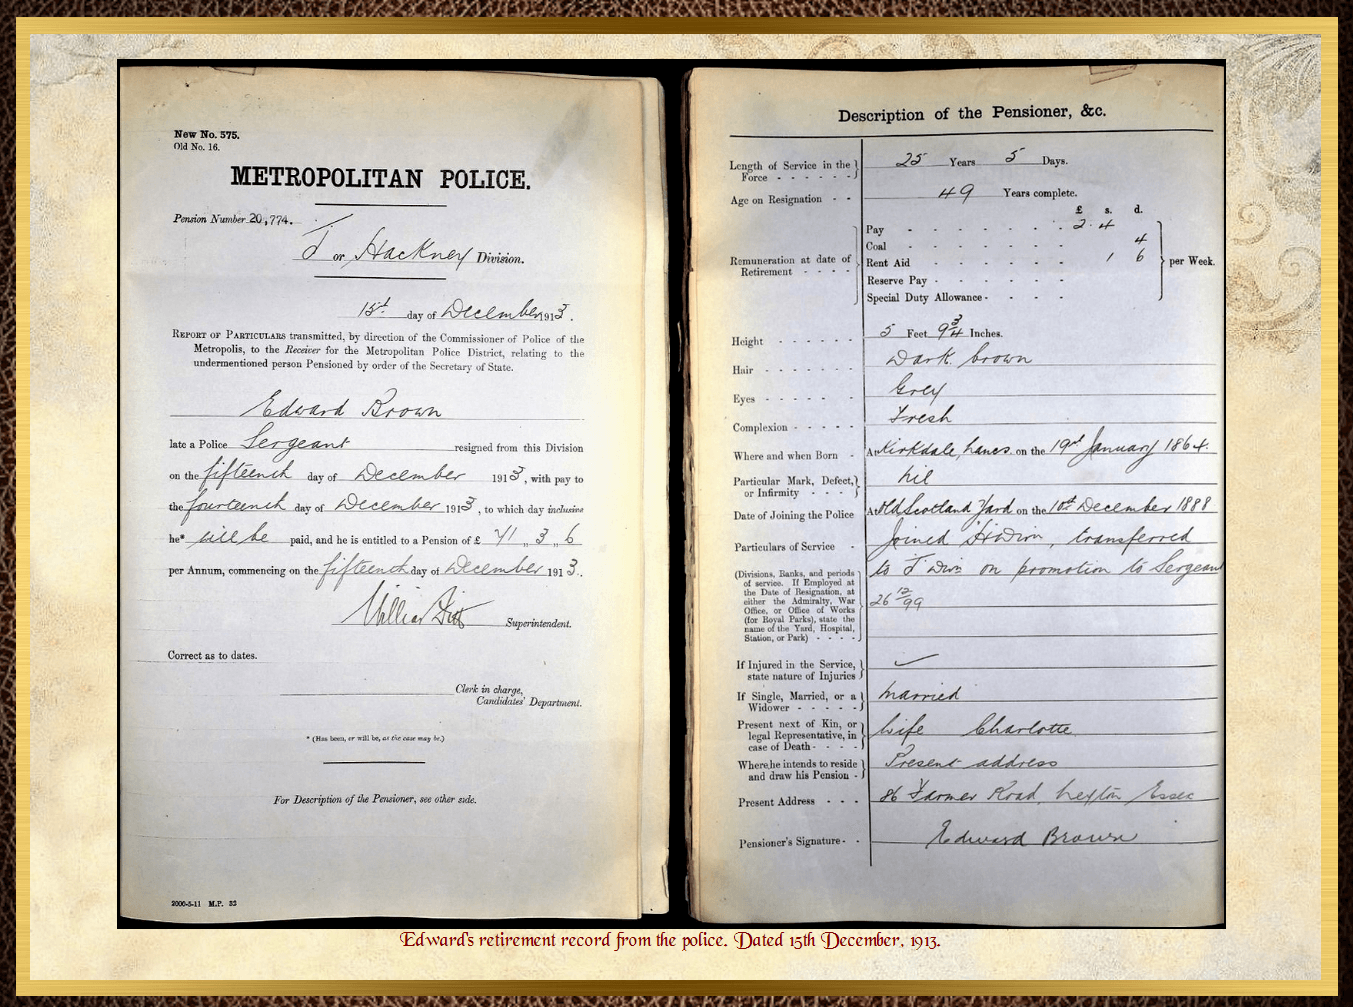 New No. 575.
Old No. 16.
METROPOLITAN POLICE.
Pension Number 20,774.
J or Hackney Division.
15th day of December 1913.
REPORT OF PARTICULARS transmitted, by direction of the Commissioner of Police of the
Metropolis, to the Receiver for the Metropolitan Police District, relating to the
undermentioned person Pensioned by order of the Secretary of State.
Edward Brown
late a Police Sergeant resigned from this Division
on the fifteenth day of December 1913, with pay to
the fourteenth day of December 1913, to which day inclusive
he* will be paid, and he is entitled to a Pension of £ 71 „ 3 „ 6
per Annum, commencing on the fifteenth day of December 1913.
William Superintendent.
Correct as to dates.
Clerk in charge,
Candidates' Department.
* (Has been, or will be, as the case may be.)
For Description of the Pensioner, see other side.
2000-5-11 M.P. 32
Description of the Pensioner, &c.
Length of Service in the Force - - - - - - 25 Years 5 Days.
Age on Resignation - - 49 Years complete.
£ s. d.
Remuneration at date of Retirement - - - -
Pay - - - - - - - 2. 4
Coal - - - - - - 4
Rent Aid - - - - - 1 6
Reserve Pay - - - - -
Special Duty Allowance - - - -
per Week.
Height - - - - - - 5 Feet 9 3/4 Inches.
Hair - - - - - - Dark brown
Eyes - - - - - Grey
Complexion - - - - - Fresh
Where and when Born - At Kirkdale Lancs. on the 19th January 1864.
Particular Mark, Defect, or Infirmity - - - nil
Date of Joining the Police At Old Scotland Yard on the 10th December 1888
Particulars of Service - Joined H Divn, transferred
to J Divn on promotion to Sergeant
26 12/99
(Divisions, Ranks, and periods
of service. If Employed at
the Date of Resignation, at
either the Admiralty, War
Office, or Office of Works
(for Royal Parks), state the
name of the Yard, Hospital,
Station, or Park) - - - -
If Injured in the Service, state nature of Injuries
If Single, Married, or a Widower - - - - - Married
Present next of Kin, or legal Representative, in case of Death - - - - Wife Charlotte
Where he intends to reside and draw his Pension - Present address
Present Address - - - 86 Farmer Road, Leyton Essex
Pensioner's Signature - - Edward Brown
Edward's retirement record from the police. Dated 15th December, 1913.